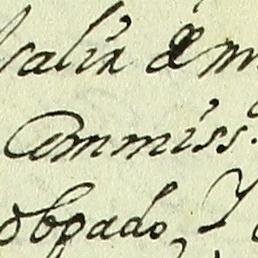 salir à m
Commiss.
obpado, Y